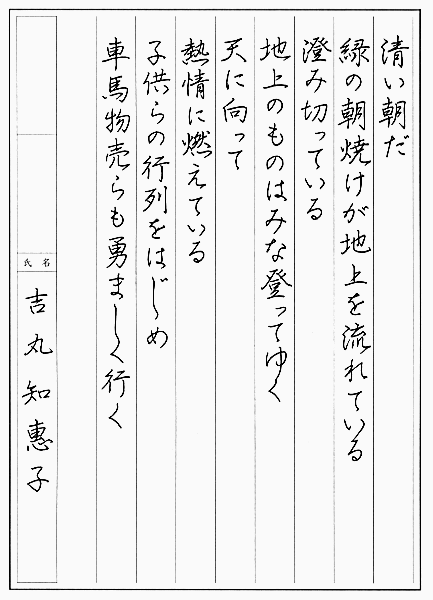 清い朝だ
緑の朝焼けが地上を流れている
澄み切っている
地上のものはみな登ってゆく
天に向って
熱情に燃えている
子供らの行列をはじめ
車馬物売らも勇ましく行く
氏名
吉丸知恵子